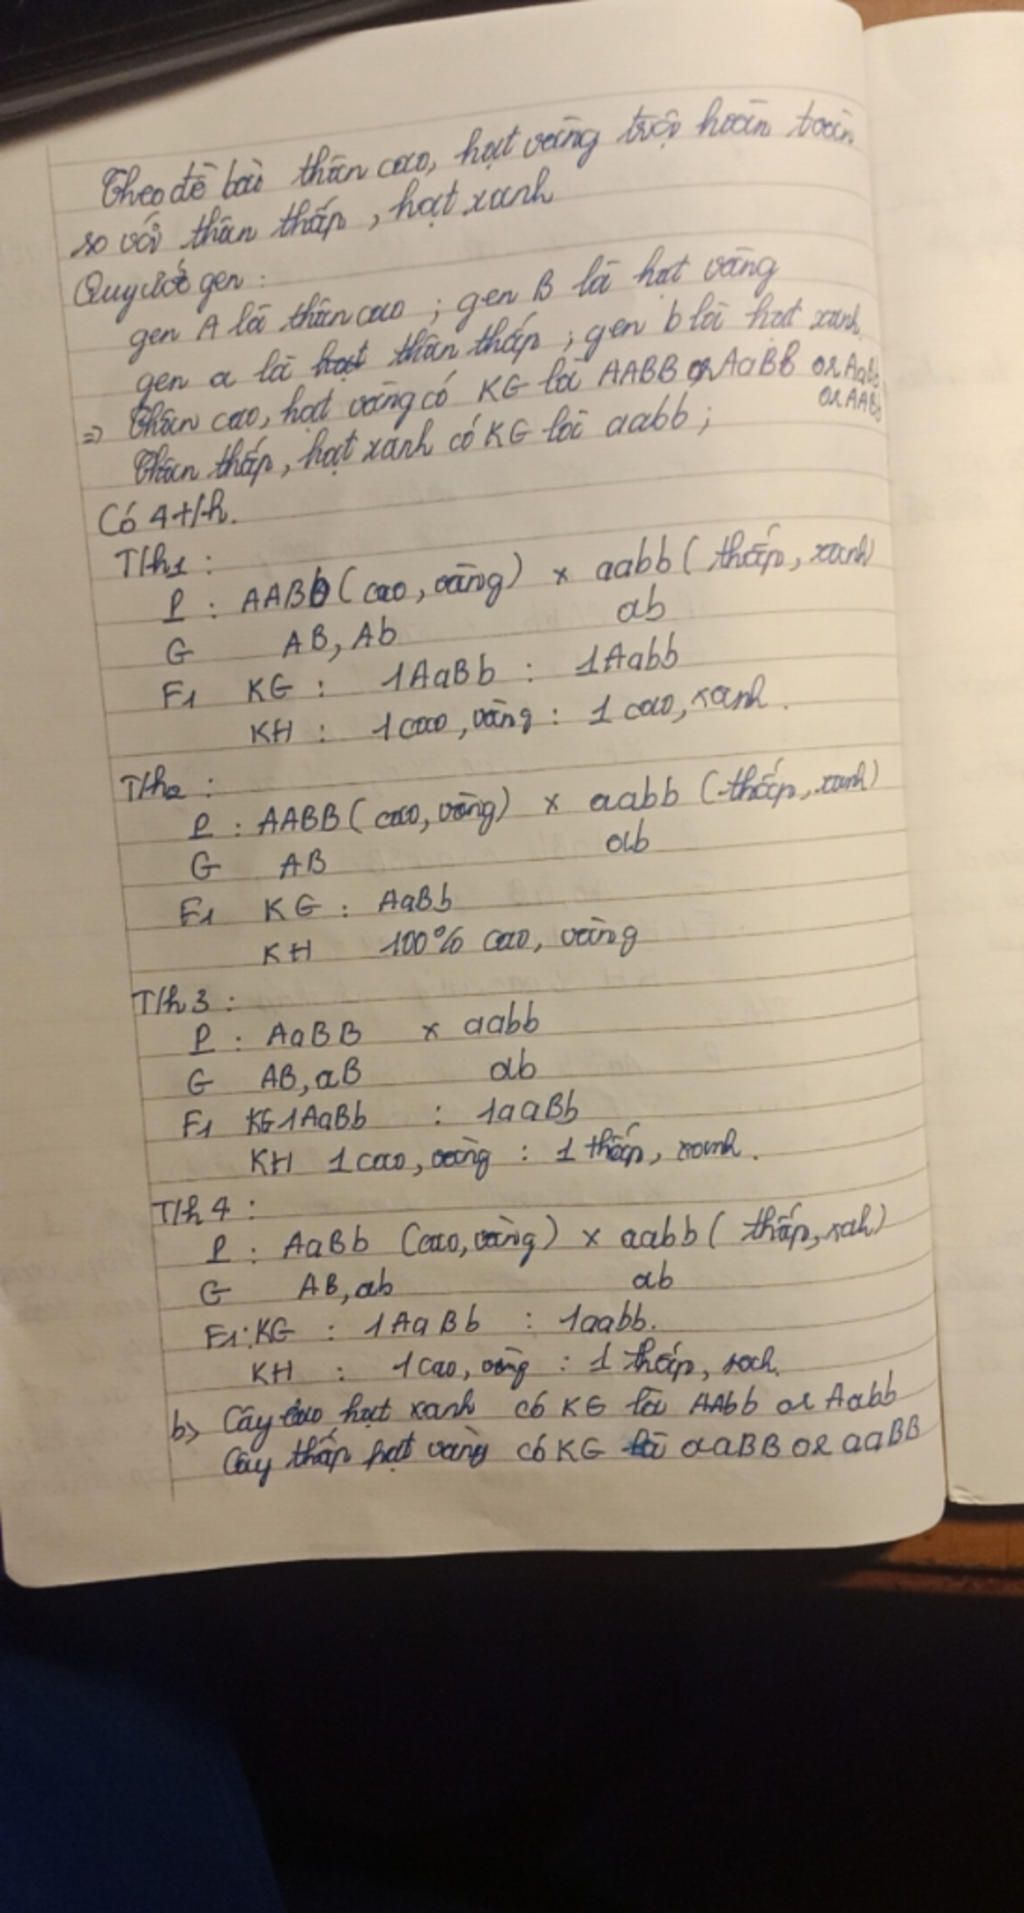 Theo đề bài thân cao, hạt vàng trội hoàn toàn
so với thân thấp, hạt xanh
Quy ước gen :
gen A là thân cao ; gen B là hạt vàng
gen a là hạt thân thấp ; gen b là hạt xanh
=> Thân cao, hạt vàng có KG là AABB or AaBB or AaBb
or AABb
Thân thấp, hạt xanh có KG là aabb ;
Có 4 t/h.
T/h1 :
P : AABb ( cao, vàng ) x aabb ( thấp, xanh)
G AB, Ab ab
F1 KG : 1AaBb : 1Aabb
KH : 1 cao, vàng : 1 cao, xanh .
T/h2 :
P : AABB ( cao, vàng) x aabb ( thấp, xanh)
G AB ab
F1 KG : AaBb
KH 100% cao, vàng
T/h 3 :
P : AaBB x aabb
G AB, aB ab
F1 KG 1AaBb : 1aaBb
KH 1 cao, vàng : 1 thấp, xanh .
T/h 4 :
P : AaBb (cao, vàng) x aabb ( thấp, xah)
G AB, ab ab
F1 : KG : 1AaBb : 1aabb.
KH : 1 cao, vàng : 1 thấp, xach.
b> Cây cao hạt xanh có KG là AAbb or Aabb
Cây thấp hạt vàng có KG là aaBB or aaBB